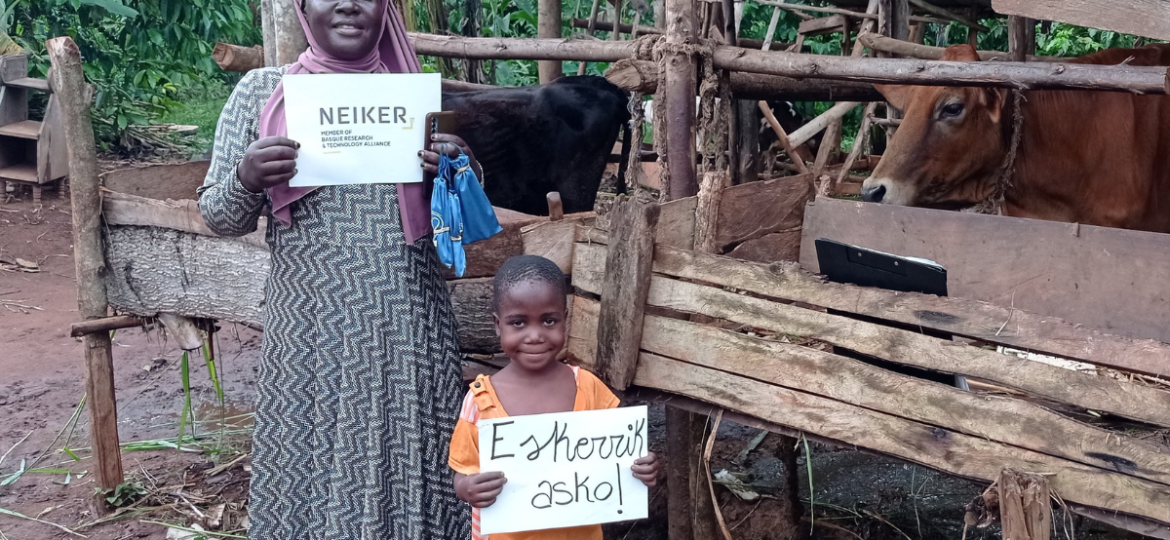 NEIKER
MEMBER OF
BASQUE RESEARCH
& TECHNOLOGY ALLIANCE
Eskerrik
asko!